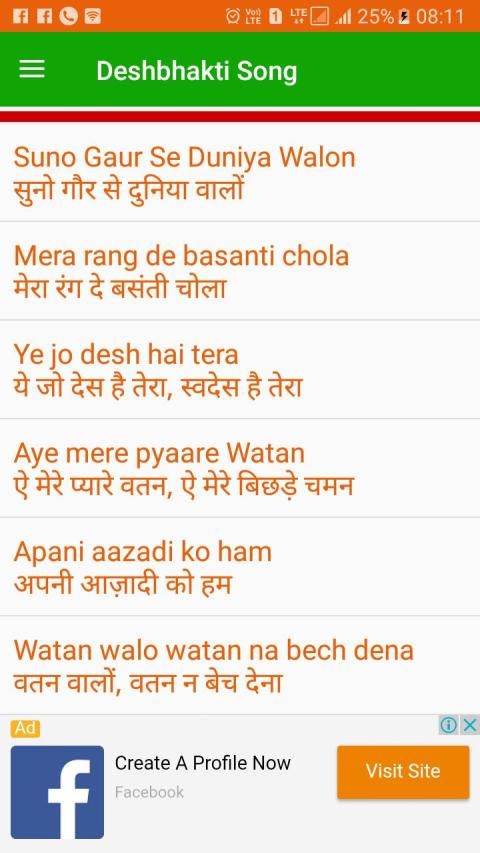 Vo))
LTE 1 LTE 25% 08:11
Deshbhakti Song
Suno Gaur Se Duniya Walon
सुनो गौर से दुनिया वालों
Mera rang de basanti chola
मेरा रंग दे बसंती चोला
Ye jo desh hai tera
ये जो देस है तेरा, स्वदेस है तेरा
Aye mere pyaare Watan
ऐ मेरे प्यारे वतन, ऐ मेरे बिछड़े चमन
Apani aazadi ko ham
अपनी आज़ादी को हम
Watan walo watan na bech dena
वतन वालों, वतन न बेच देना
Ad
Create A Profile Now
Facebook
Visit Site